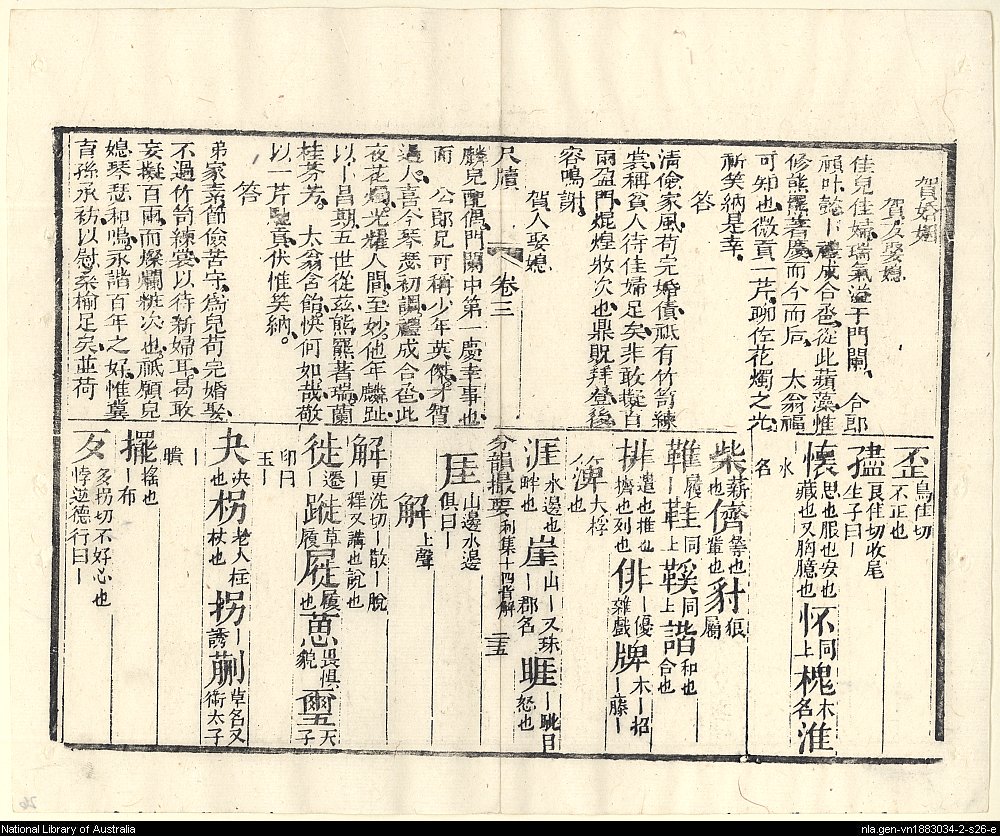 賀婚姻
賀友娶媳
佳兒佳婦瑞氣溢于門闌 令郎
頎叶懿卜禮成合巹從此蘋藻惟
修熊羆著慶而今而后 太翁福
可知也微貢一芹聊佐花燭之光
祈笑納是幸
答
清儉家風荷完婚債祗有竹笥練
裳稱貧人待佳婦足矣非敢擬百
兩盈門焜煌妝次也鼎貺拜登後
容鳴謝
賀人娶媳
尺牘 卷三
麟兒配偶門闌中第一慶幸事也
而 公郎兄可稱少年英傑才智
過人喜今琴瑟初調禮成合巹此
夜花燭光耀人間至妙他年麟趾
以昌期五世從茲熊羆著瑞蘭
桂芬芳 太翁含飴快何如哉敬
以一芹馳貢伏惟笑納
答
弟家素節儉苦守為兒荷完婚娶
不過竹笥練裳以待新婦耳曷敢
妄擬百兩而燦爛粧次也祗願兒
媳琴瑟和鳴永諧百年之好惟冀
育孫承祊以慰桑榆足矣並荷
歪烏佳切不正也
㨟艮佳切收尾生子曰丨
懷思也服也安也藏也又胸臆也 怀同上 槐木名 淮
水名
柴薪也 儕等也輩也 豺狼屬
鞋履丨 鞋同上 鞵同上 諧和也合也
排遣也推也擠也列也 俳丨優雜戲 牌木丨招丨藤丨
簰大桴也
涯水邊也畔也 崖山丨又珠丨郡名 睚丨眦目怒也
分韻撮要 利集十四皆解 三十五
厓山邊水邊俱曰丨
解上聲
解更洗切丨散丨脫丨釋又講也說也
徙遷丨 蹝草履 屣履也 葸畏懼貌 璽天子
印曰玉丨
夬决也 枴老人柱杖也 拐誘丨 蒯草名又衛太子
丨聵
擺搖也丨布
歹多拐切不好心也悖逆德行曰丨
National Library of Australia
nla.gen-vn1883034-2-s26-e